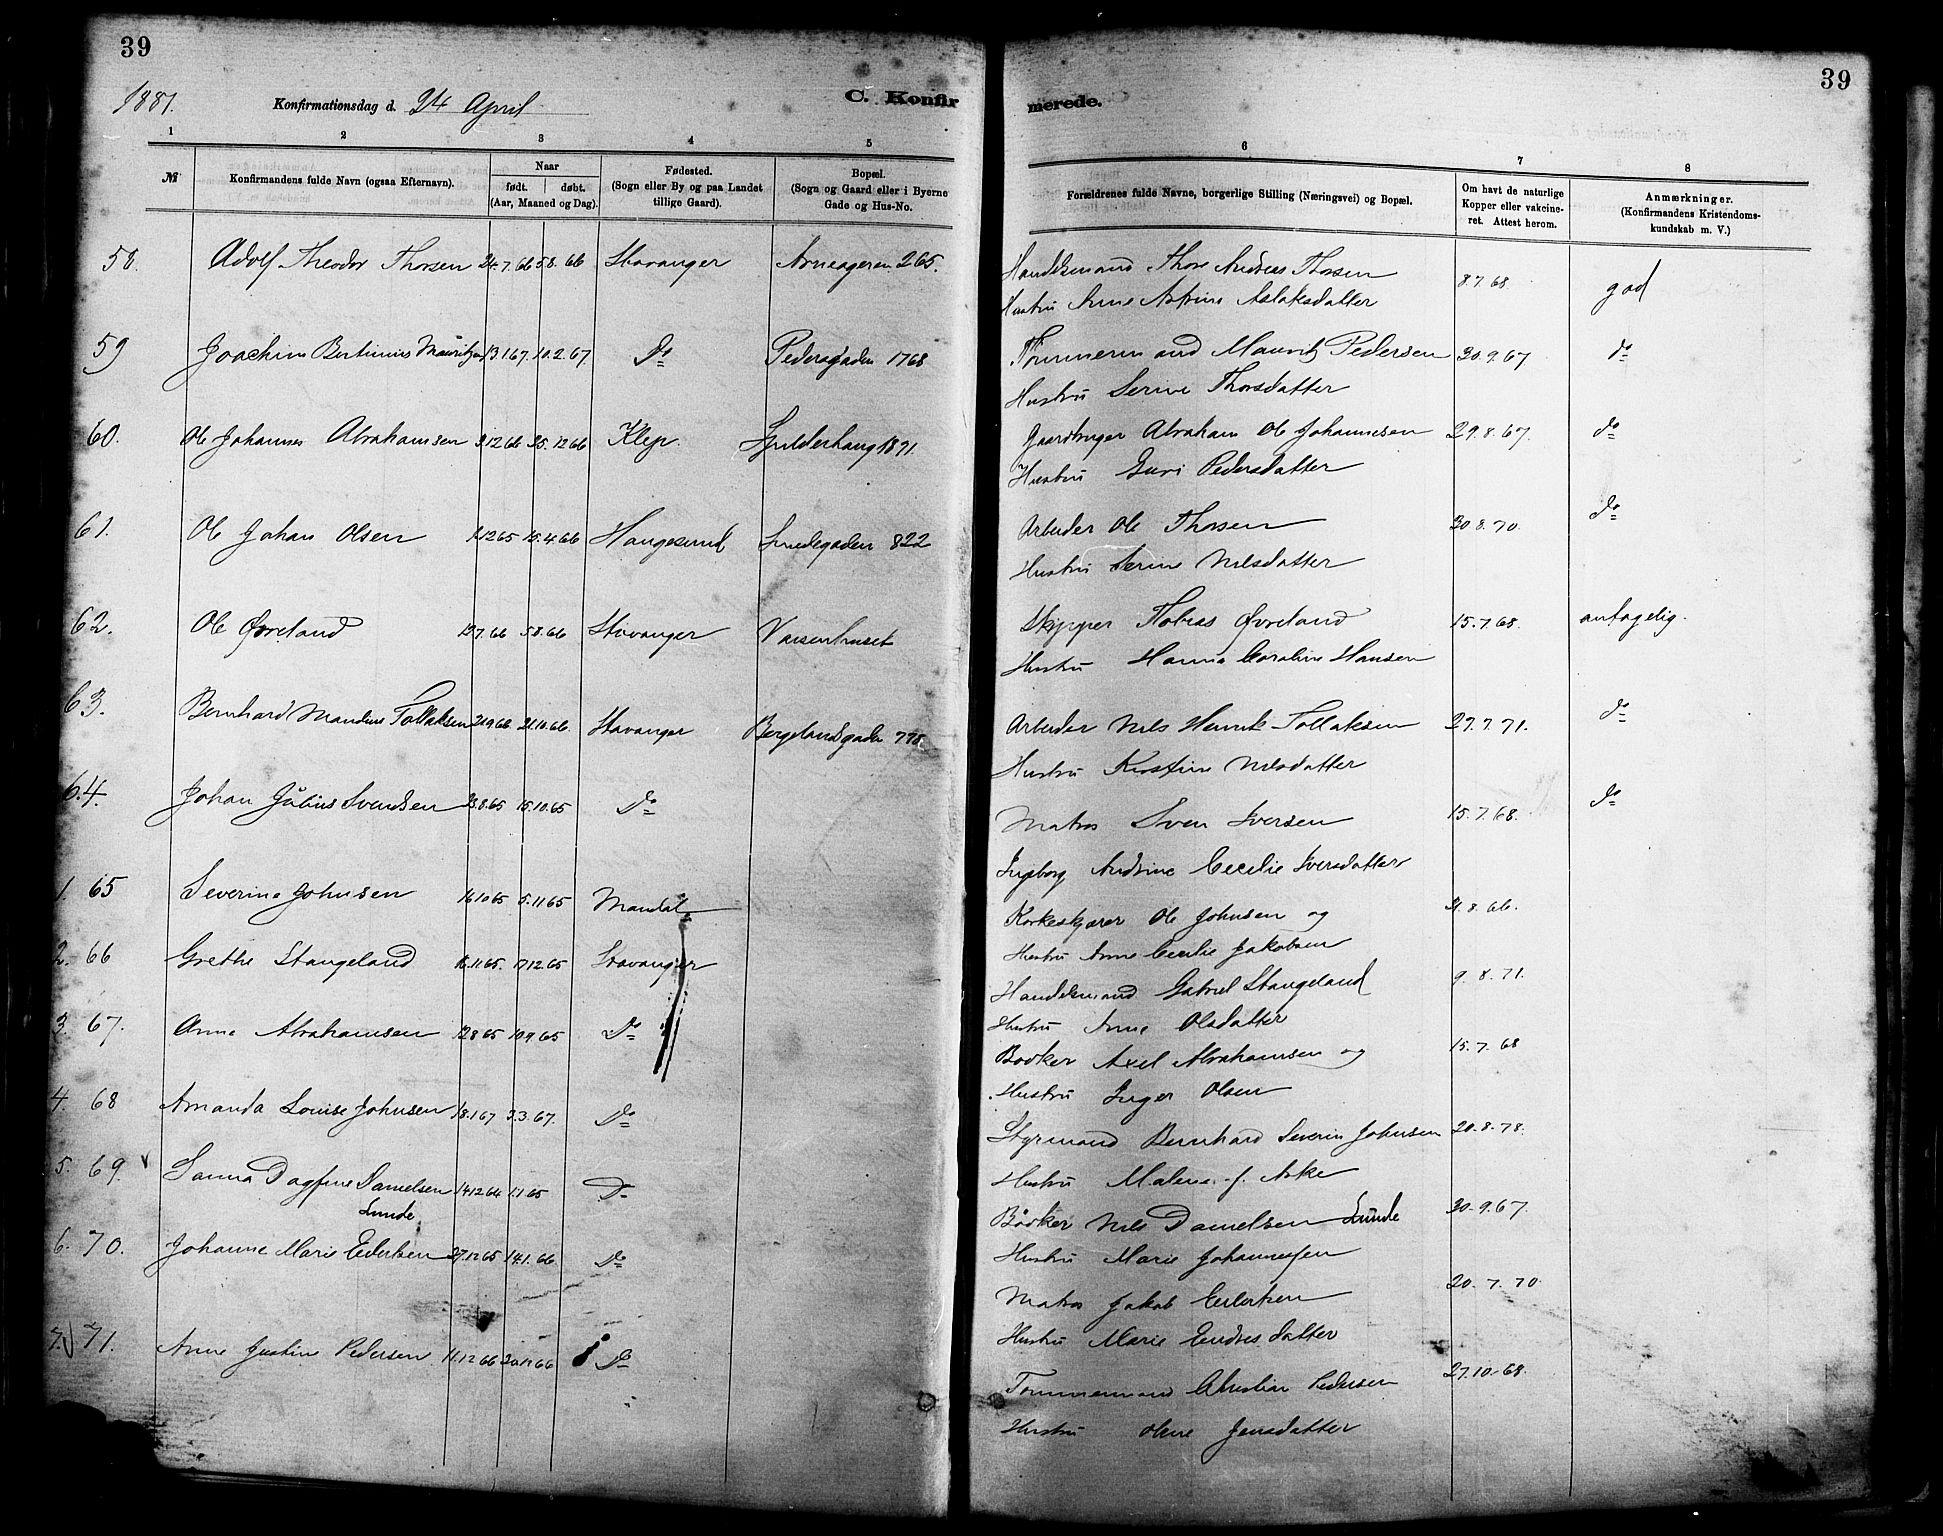 39
39
1881. Konfirmationsdag d. 24 April C. Konfirmerede.
1 2 3 4 5 6 7 8
№ Konfirmandens fulde Navn (ogsaa Efternavn). Naar født. døbt. (Aar, Maaned og Dag). Fødested. (Sogn eller By og paa Landet tillige Gaard). Bopæl. (Sogn og Gaard eller i Byerne Gade og Hus-No. Forældrenes fulde Navne, borgerlige Stilling (Næringsvei) og Bopæl. Om havt de naturlige Kopper eller vakcineret. Attest herom. Anmærkninger. (Konfirmandens Kristendomskundskab m. V.)
58. Adolf Theodor Thorsen 24.7.66 5.8.66 Stavanger Arneageren 265. Handelsmand Thore Andreas Thorsen 8.7.68. god
Hustru Anne Aslaksdatter
59 Joachim Bertinius Mauritzen 13.1.67. 10.2.67. Do Pedersgaden 1768 Tømmermand Mauritz Pedersen 30.9.67 do
Hustru Serine Thorsdatter
60. Ole Johannes Abrahamsen 3.12.66 25.12.66 Klep. 1871. Gaardbruger Abraham Ole Johannesen 29.8.67. do
Hustru Guri Pedersdatter
61. Ole Johan Olsen 1.12.65 15.4.66 Haugesund 822 Arbeider Ole Thorsen 30.8.70. do
Hustru Serine Nilsdatter
62. Ole Øvreland 13.7.66 5.8.66 Stavanger Vaisenhuset Skipper Tobias Øvreland 15.7.68. antagelig.
Hustru Hanna Caroline Hansen
63. Bernhard Mandius Tollaksen 20.9.66 21.10.66 Stavanger Bergelandsgaden 778 Arbeider Nils Henrik Tollaksen 27.7.71. do
Hustru Kirstine Nilsdatter
64. Johan Julius Svendsen 23.8.65 15.10.65 Do Matros Sven Iversen 15.7.68. do
Ingeborg Andrine Cecilie Iversdatter
1. 65 Severine Johnsen 16.10.65 5.11.65 Mandal Korkeskjærer Ole Johnsen og 31.8.66.
Hustru Anne Cecilie Jakobsen
2. 66 Grethe Stangeland 16.11.65. 17.12.65 Stavanger Handelsmand Gabriel Stangeland 9.8.71.
Hustru Anne Olsdatter
3. 67. Anna Abrahamsen 12.8.65 10.9.65 Do Bødker Axel Abrahamsen og 15.7.68
Hustru Inger Olsen
4. 68 Amanda Louise Johnsen 18.1.67 3.3.67. Do Styrmand Bernhard Severin Johnsen 20.8.78.
Hustru Malene f. Aske
5. 69. Sanna Dagfine Danielsen 14.12.64 1.1.65 Do Bødker Nils Danielsen Lunde 30.9.67.
Lunde
Hustru Marie Johannessen
6. 70. Johanne Marie Eilertsen 27.12.65 14.1.66 Do Matros Jakob Eilertsen 20.7.70.
Hustru Marie Endresdatter
7. 71. Anne Justine Pedersen 11.12.66 30.12.66 Do Tømmermand Christian Pedersen 27.10.68.
Hustru Olene Jensdatter